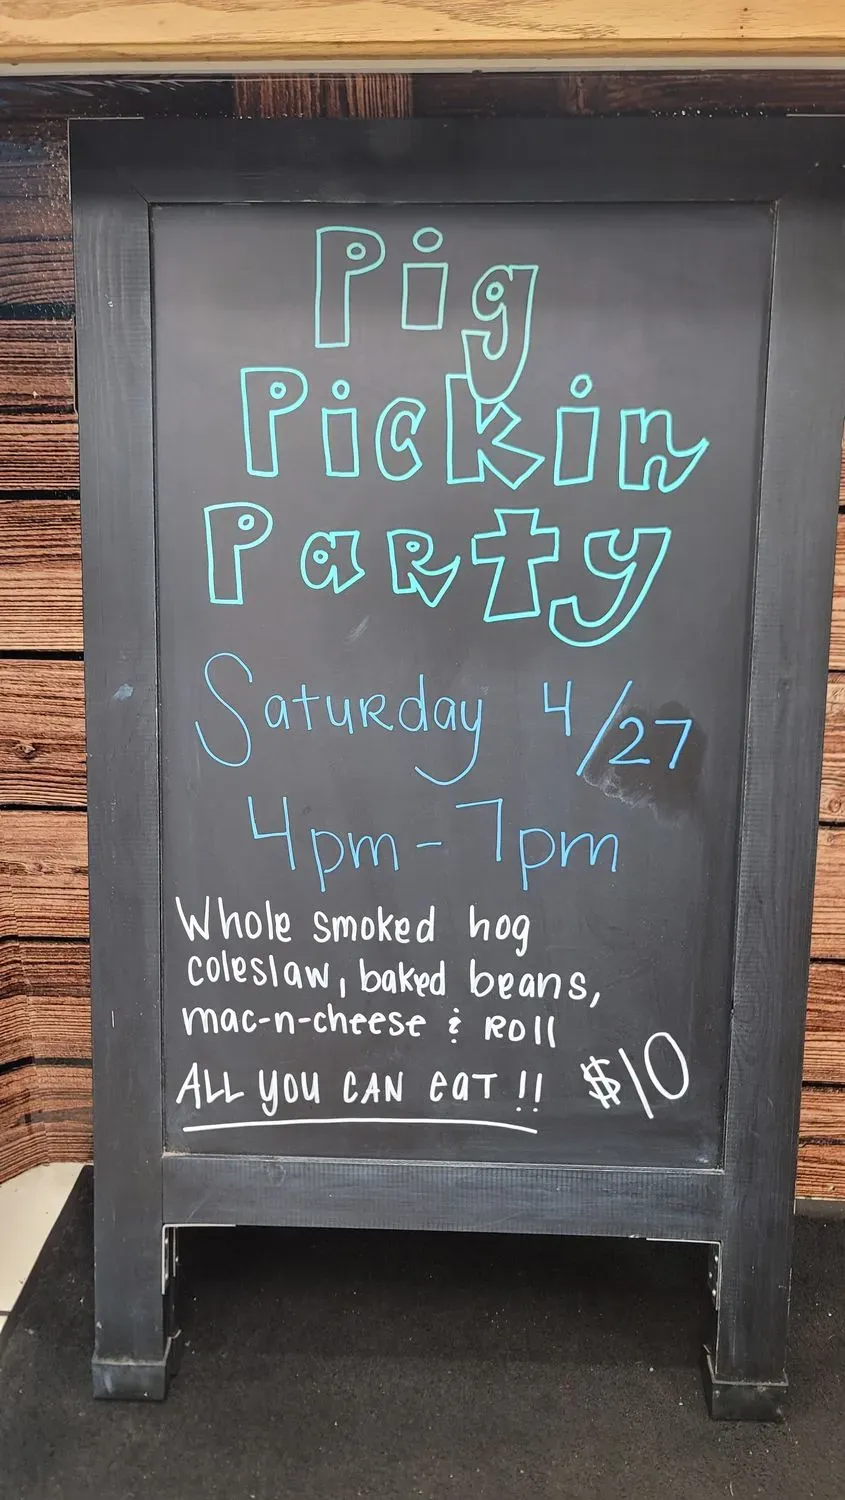 Pig
Pickin
Party
Saturday 4/27
4pm-7pm
Whole smoked hog
coleslaw, baked beans,
mac-n-cheese & Roll
ALL you CAN eat !! $10